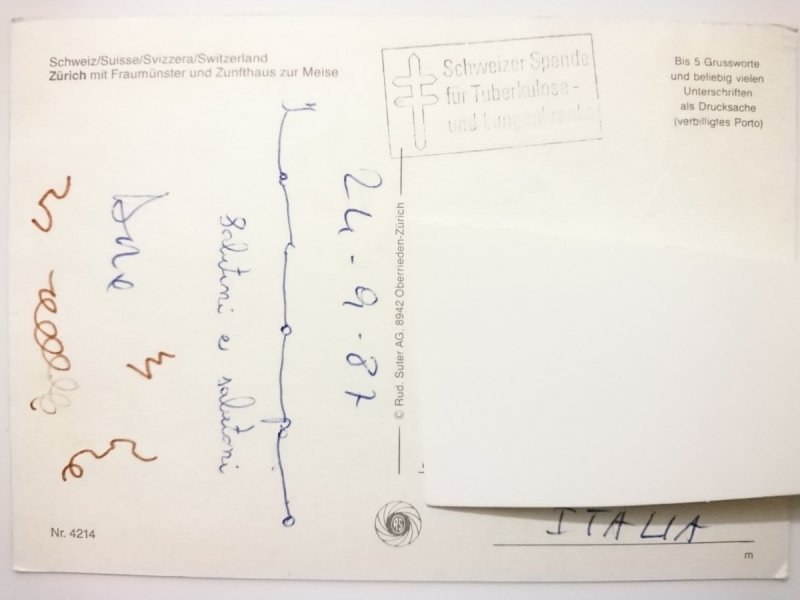 Schweiz/Suisse/Svizzera/Switzerland
Zürich mit Fraumünster und Zunfthaus zur Meise
Schweizer Spende
für Tuberkulose-
und Lungenkranke
Bis 5 Grussworte
und beliebig vielen
Unterschriften
als Drucksache
(verbilligtes Porto)
24-9-87
Salutini e salutoni
© Rud. Suter AG, 8942 Oberrieden-Zürich
Nr. 4214
ITALIA
m